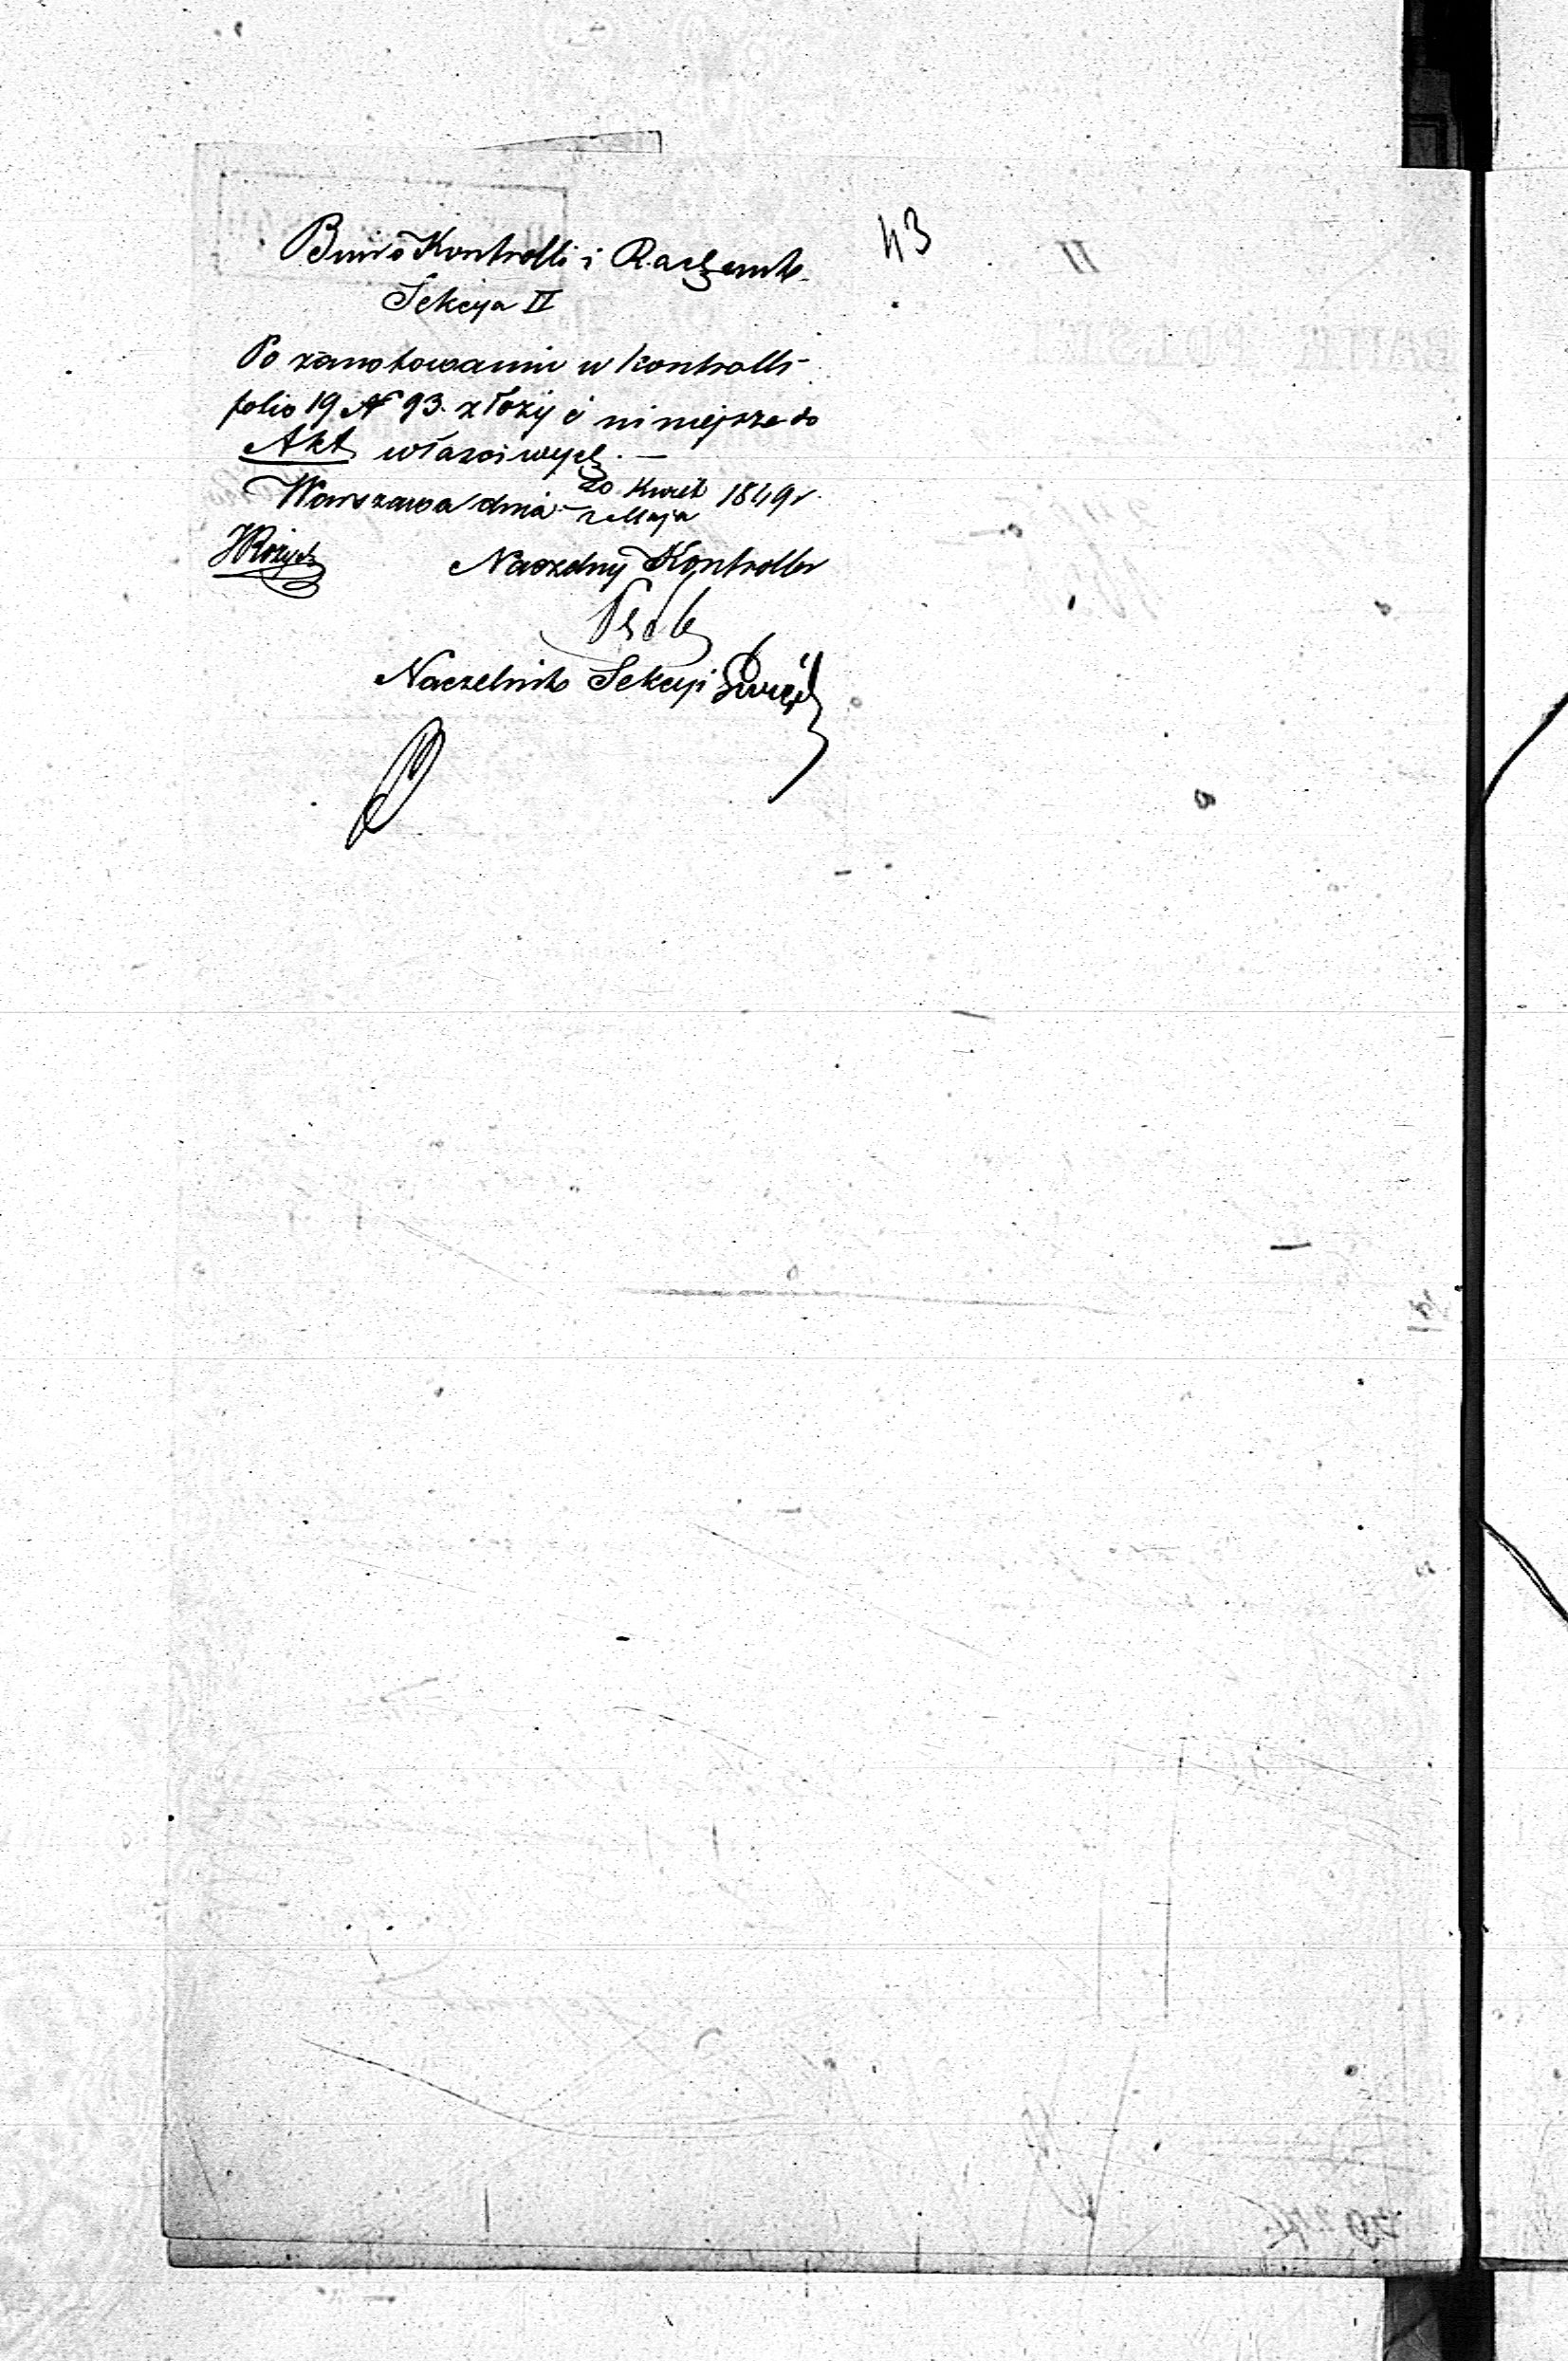 43
Biuro Kontrolli i Rachunk.
Sekcya II
Po zanotowaniu w kontrolli
folio 19 N 93. złożyć niniejsze do
Akt właściwych. —
Warszawa dnia 20 Kwiet / 2 Maja 1849 r.
Naczelny Kontroller
Naczelnik Sekcyi